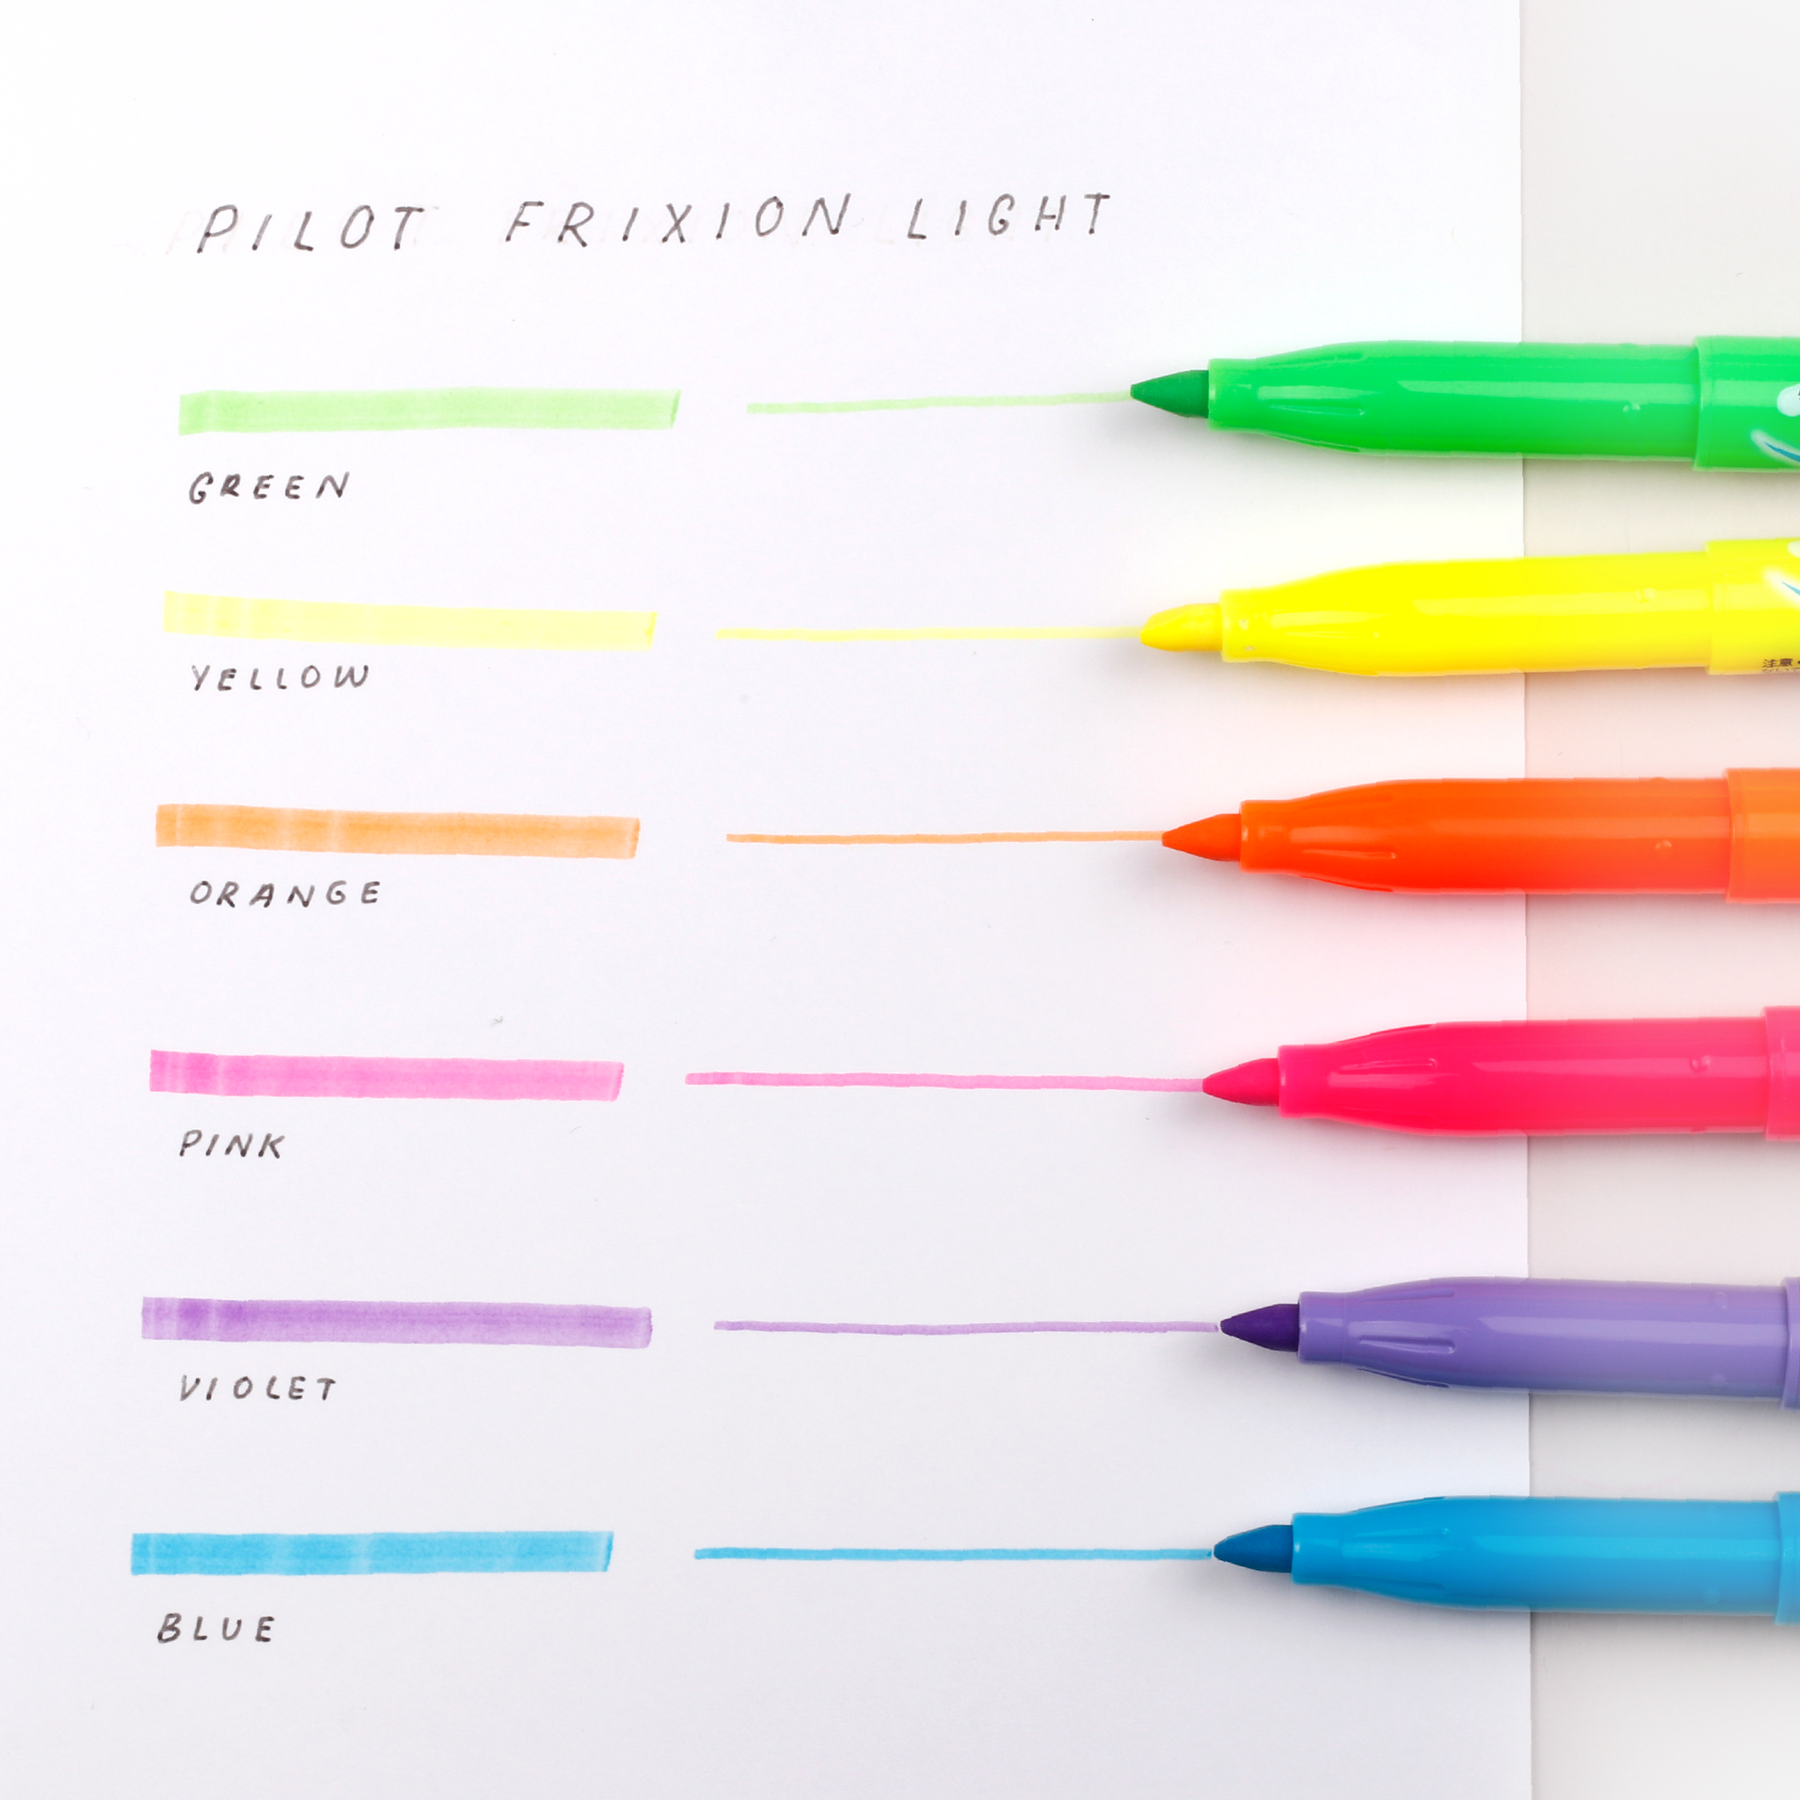 PILOT FRIXION LIGHT
GREEN
YELLOW
注意
ORANGE
PINK
VIOLET
BLUE